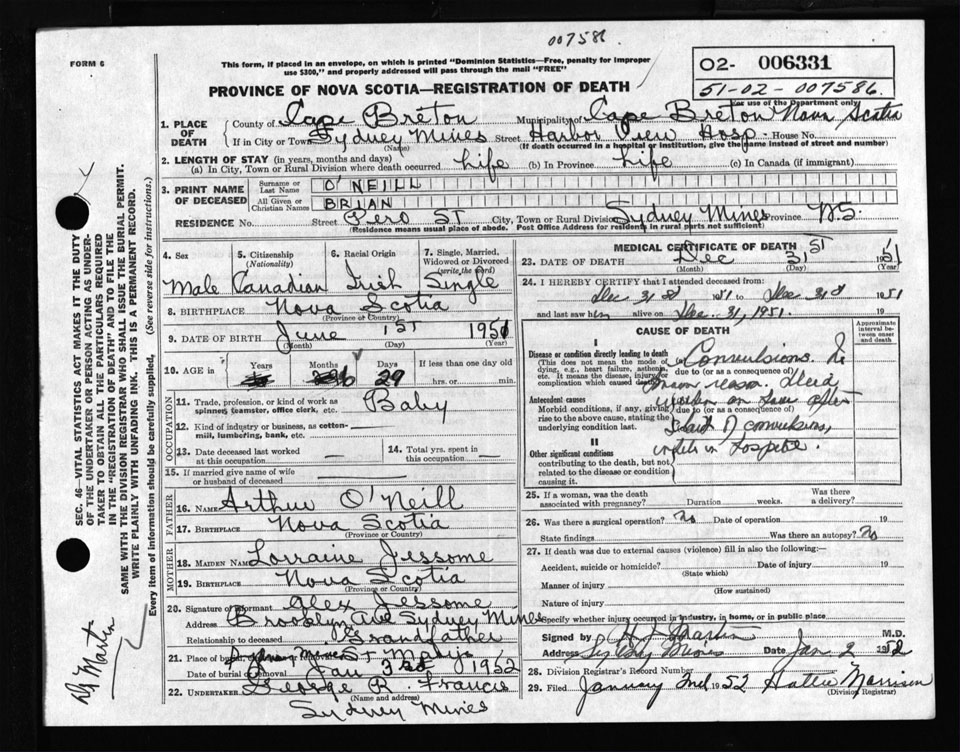 007586
FORM 6
This form, if placed in an envelope, on which is printed "Dominion Statistics—Free, penalty for improper
use $300," and properly addressed will pass through the mail "FREE"
02- 006331
51-02-007586.
For use of the Department only
PROVINCE OF NOVA SCOTIA—REGISTRATION OF DEATH
1. PLACE OF DEATH
County of Cape Breton Municipality of Cape Breton Nova Scotia
If in City or Town Sydney Mines Street Harbor View Hosp. House No.
(Name) (If death occurred in a hospital or institution, give the name instead of street and number)
2. LENGTH OF STAY (in years, months and days)
(a) In City, Town or Rural Division where death occurred Life (b) In Province Life (c) In Canada (if immigrant)
3. PRINT NAME OF DECEASED
Surname or Last Name O'NEILL
All Given or Christian Names BRIAN
RESIDENCE No. Street Pero ST City, Town or Rural Division Sydney Mines Province N.S.
(Residence means usual place of abode. Post Office Address for residents in rural parts not sufficient)
4. Sex 5. Citizenship (Nationality) 6. Racial Origin 7. Single, Married, Widowed or Divorced (write the word)
Male Canadian Irish Single
8. BIRTHPLACE Nova Scotia
(Province or Country)
9. DATE OF BIRTH June 1ST 1951
(Month) (Day) (Year)
10. AGE in Years Months Days If less than one day old
6 29 hrs. or min.
OCCUPATION
11. Trade, profession, or kind of work as spinner, teamster, office clerk, etc. Baby
12. Kind of industry or business, as cotton-mill, lumbering, bank, etc.
13. Date deceased last worked at this occupation —
14. Total yrs. spent in this occupation —
15. If married give name of wife or husband of deceased
FATHER
16. Name Arthur O'Neill
17. Birthplace Nova Scotia
(Province or Country)
MOTHER
18. Maiden Name Lorraine Jessome
19. Birthplace Nova Scotia
(Province or Country)
20. Signature of informant Alex Jessome
Address Brooklyn Ave Sydney Mines
Relationship to deceased Grandfather
21. Place of burial, cremation or removal St Marys
Date of burial or removal Jan 3rd 1952
22. UNDERTAKER George R. Francis
(Name and address)
Sydney Mines
MEDICAL CERTIFICATE OF DEATH
23. DATE OF DEATH Dec 31st 1951
(Month) (Day) (Year)
24. I HEREBY CERTIFY that I attended deceased from:
Dec 31 1951 to Dec 31 1951
and last saw him alive on Dec. 31, 1951.
CAUSE OF DEATH
Approximate interval between onset and death
I
Disease or condition directly leading to death
(This does not mean the mode of dying, e.g., heart failure, asthenia, etc. It means the disease, injury or complication which caused death)
(a) Convulsions.
due to (or as a consequence of)
reason. Died
Antecedent causes
Morbid conditions, if any, giving rise to the above cause, stating the underlying condition last.
after
due to (or as a consequence of)
start of convulsions,
II
Other significant conditions
contributing to the death, but not related to the disease or condition causing it.
while in hospital.
25. If a woman, was the death associated with pregnancy? Duration weeks. Was there a delivery?
26. Was there a surgical operation? no Date of operation 19
State findings Was there an autopsy? no
27. If death was due to external causes (violence) fill in also the following:
Accident, suicide or homicide? Date of injury 19
(State which)
Manner of injury
(How sustained)
Nature of injury
Specify whether injury occurred in industry, in home, or in public place
Signed by Martin M.D.
Address Sydney Mines Date Jan 2 1952
28. Division Registrar's Record Number
29. Filed January 2nd 1952 Hattie Morrison
(Division Registrar)
SEC. 46—VITAL STATISTICS ACT MAKES IT THE DUTY
OF THE UNDERTAKER OR PERSON ACTING AS UNDER-
TAKER TO OBTAIN ALL THE PARTICULARS REQUIRED
IN THE "REGISTRATION OF DEATH" AND TO FILE THE
SAME WITH THE DIVISION REGISTRAR WHO SHALL ISSUE THE BURIAL PERMIT.
WRITE PLAINLY WITH UNFADING INK. THIS IS A PERMANENT RECORD.
Every item of information should be carefully supplied. (See reverse side for instructions.)
Dr Martin